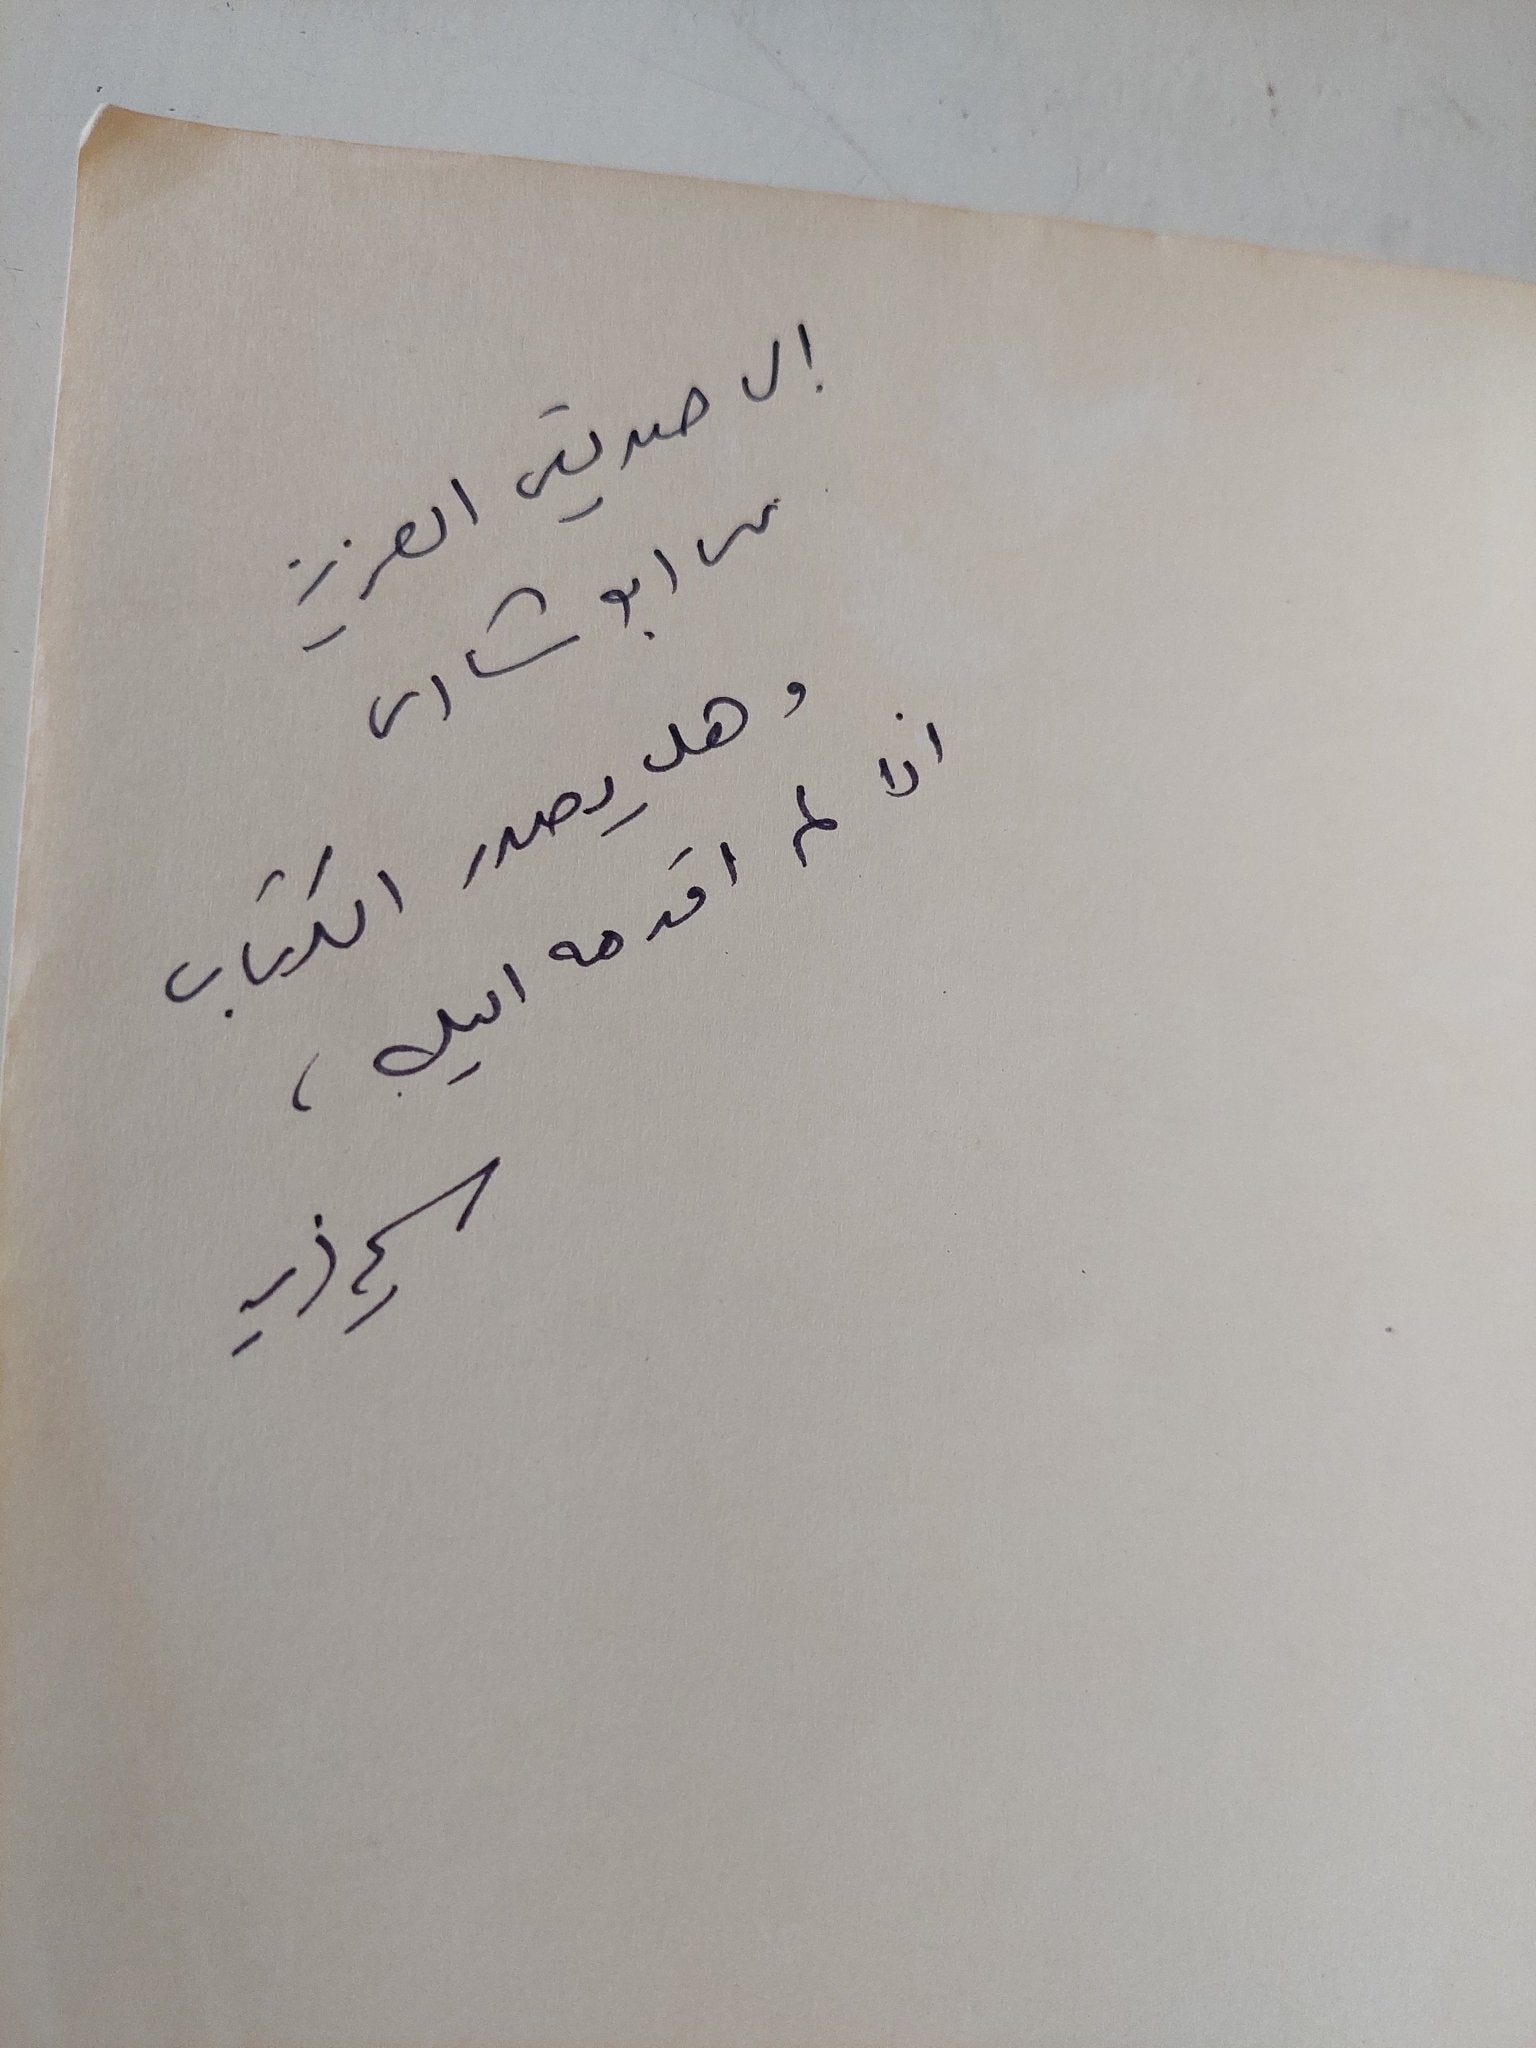 إلى صديقي العزيز
ابو شادى
وهل يصدر الكتاب
اذا لم اقدمه اليك،